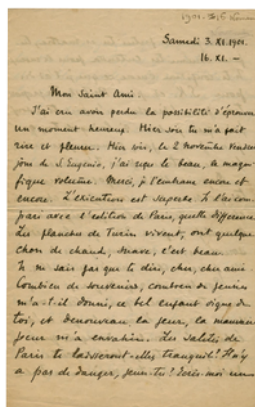 1901. 3/15 November
Samedi 3. XI. 1901.
16. XI. —
Mon Saint Ami.
J'ai cru avoir perdu la possibilité d'éprouver
un moment heureux. Hier soir tu m'a fait
rire et pleurer. Hier soir, le 2 Novembre
jour de S. Eugenio, j'ai reçu le beau, le magni-
fique volume. Merci, je t'embrasse encore et
encore. L'exécution est superbe. Je l'ai com-
paré avec l'édition de Paris, quelle différence.
Les planches de Turin vivent, ont quelque
chose de chaud, suave, c'est beau.
Je ne sais pas que te dire, cher, cher ami
Combien de souvenirs, combien de
m'a-t-il donné, ce bel enfant digne de
toi, et de nouveau la peur, la mauvaise
peur m'a envahie. Les
Paris te laisseront-elles tranquil? Il n'y
a pas de danger, Ecris-moi un